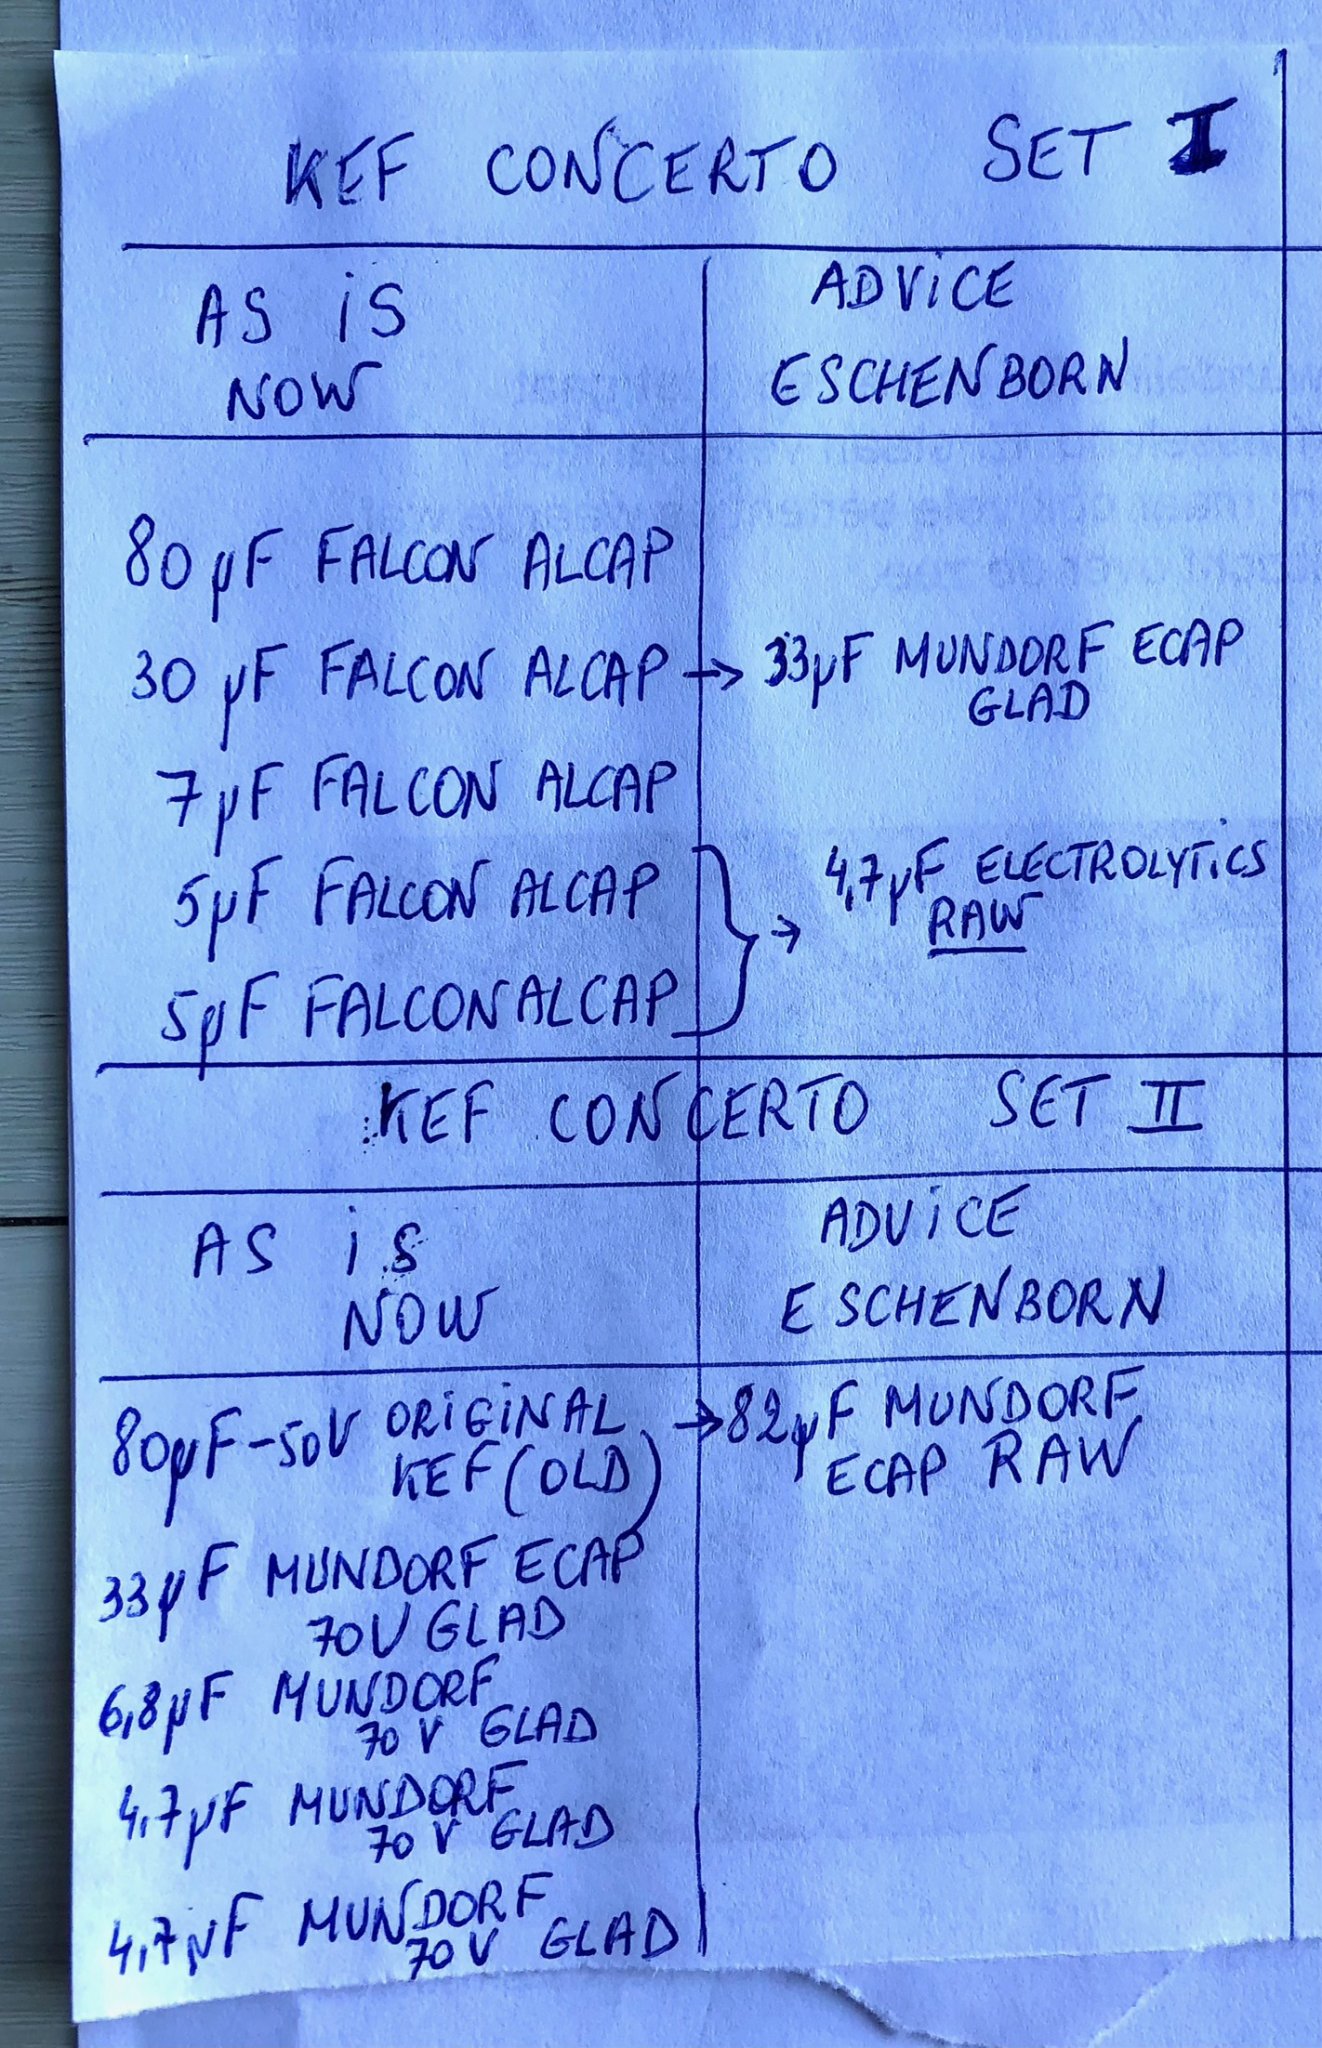 KEF CONCERTO SET I
AS iS
NOW
ADViCE
ESCHENBORN
80 µF FALCON ALCAP
30 µF FALCON ALCAP → 33µF MUNDORF ECAP
GLAD
7µF FALCON ALCAP
5µF FALCON ALCAP
5µF FALCON ALCAP
} → 4,7µF ELECTROLYTiCS
RAW
KEF CONCERTO SET II
AS iS
NOW
ADViCE
ESCHENBORN
80µF-50V ORiGiNAL
KEF (OLD)
→ 82µF MUNDORF
ECAP RAW
33µF MUNDORF ECAP
70V GLAD
6,8µF MUNDORF
70 V GLAD
4,7µF MUNDORF
70 V GLAD
4,7µF MUNDORF
70 V GLAD